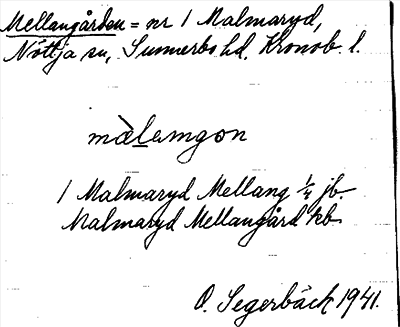 Mellangården = nr 1 Malmaryd,
Nöttja sn, Sunnerbo hd. Kronob. l.
màlamgon
1 Malmaryd Mellang 1/4 jb.
Malmaryd Mellangård kb.
O. Segerbäck 1941.